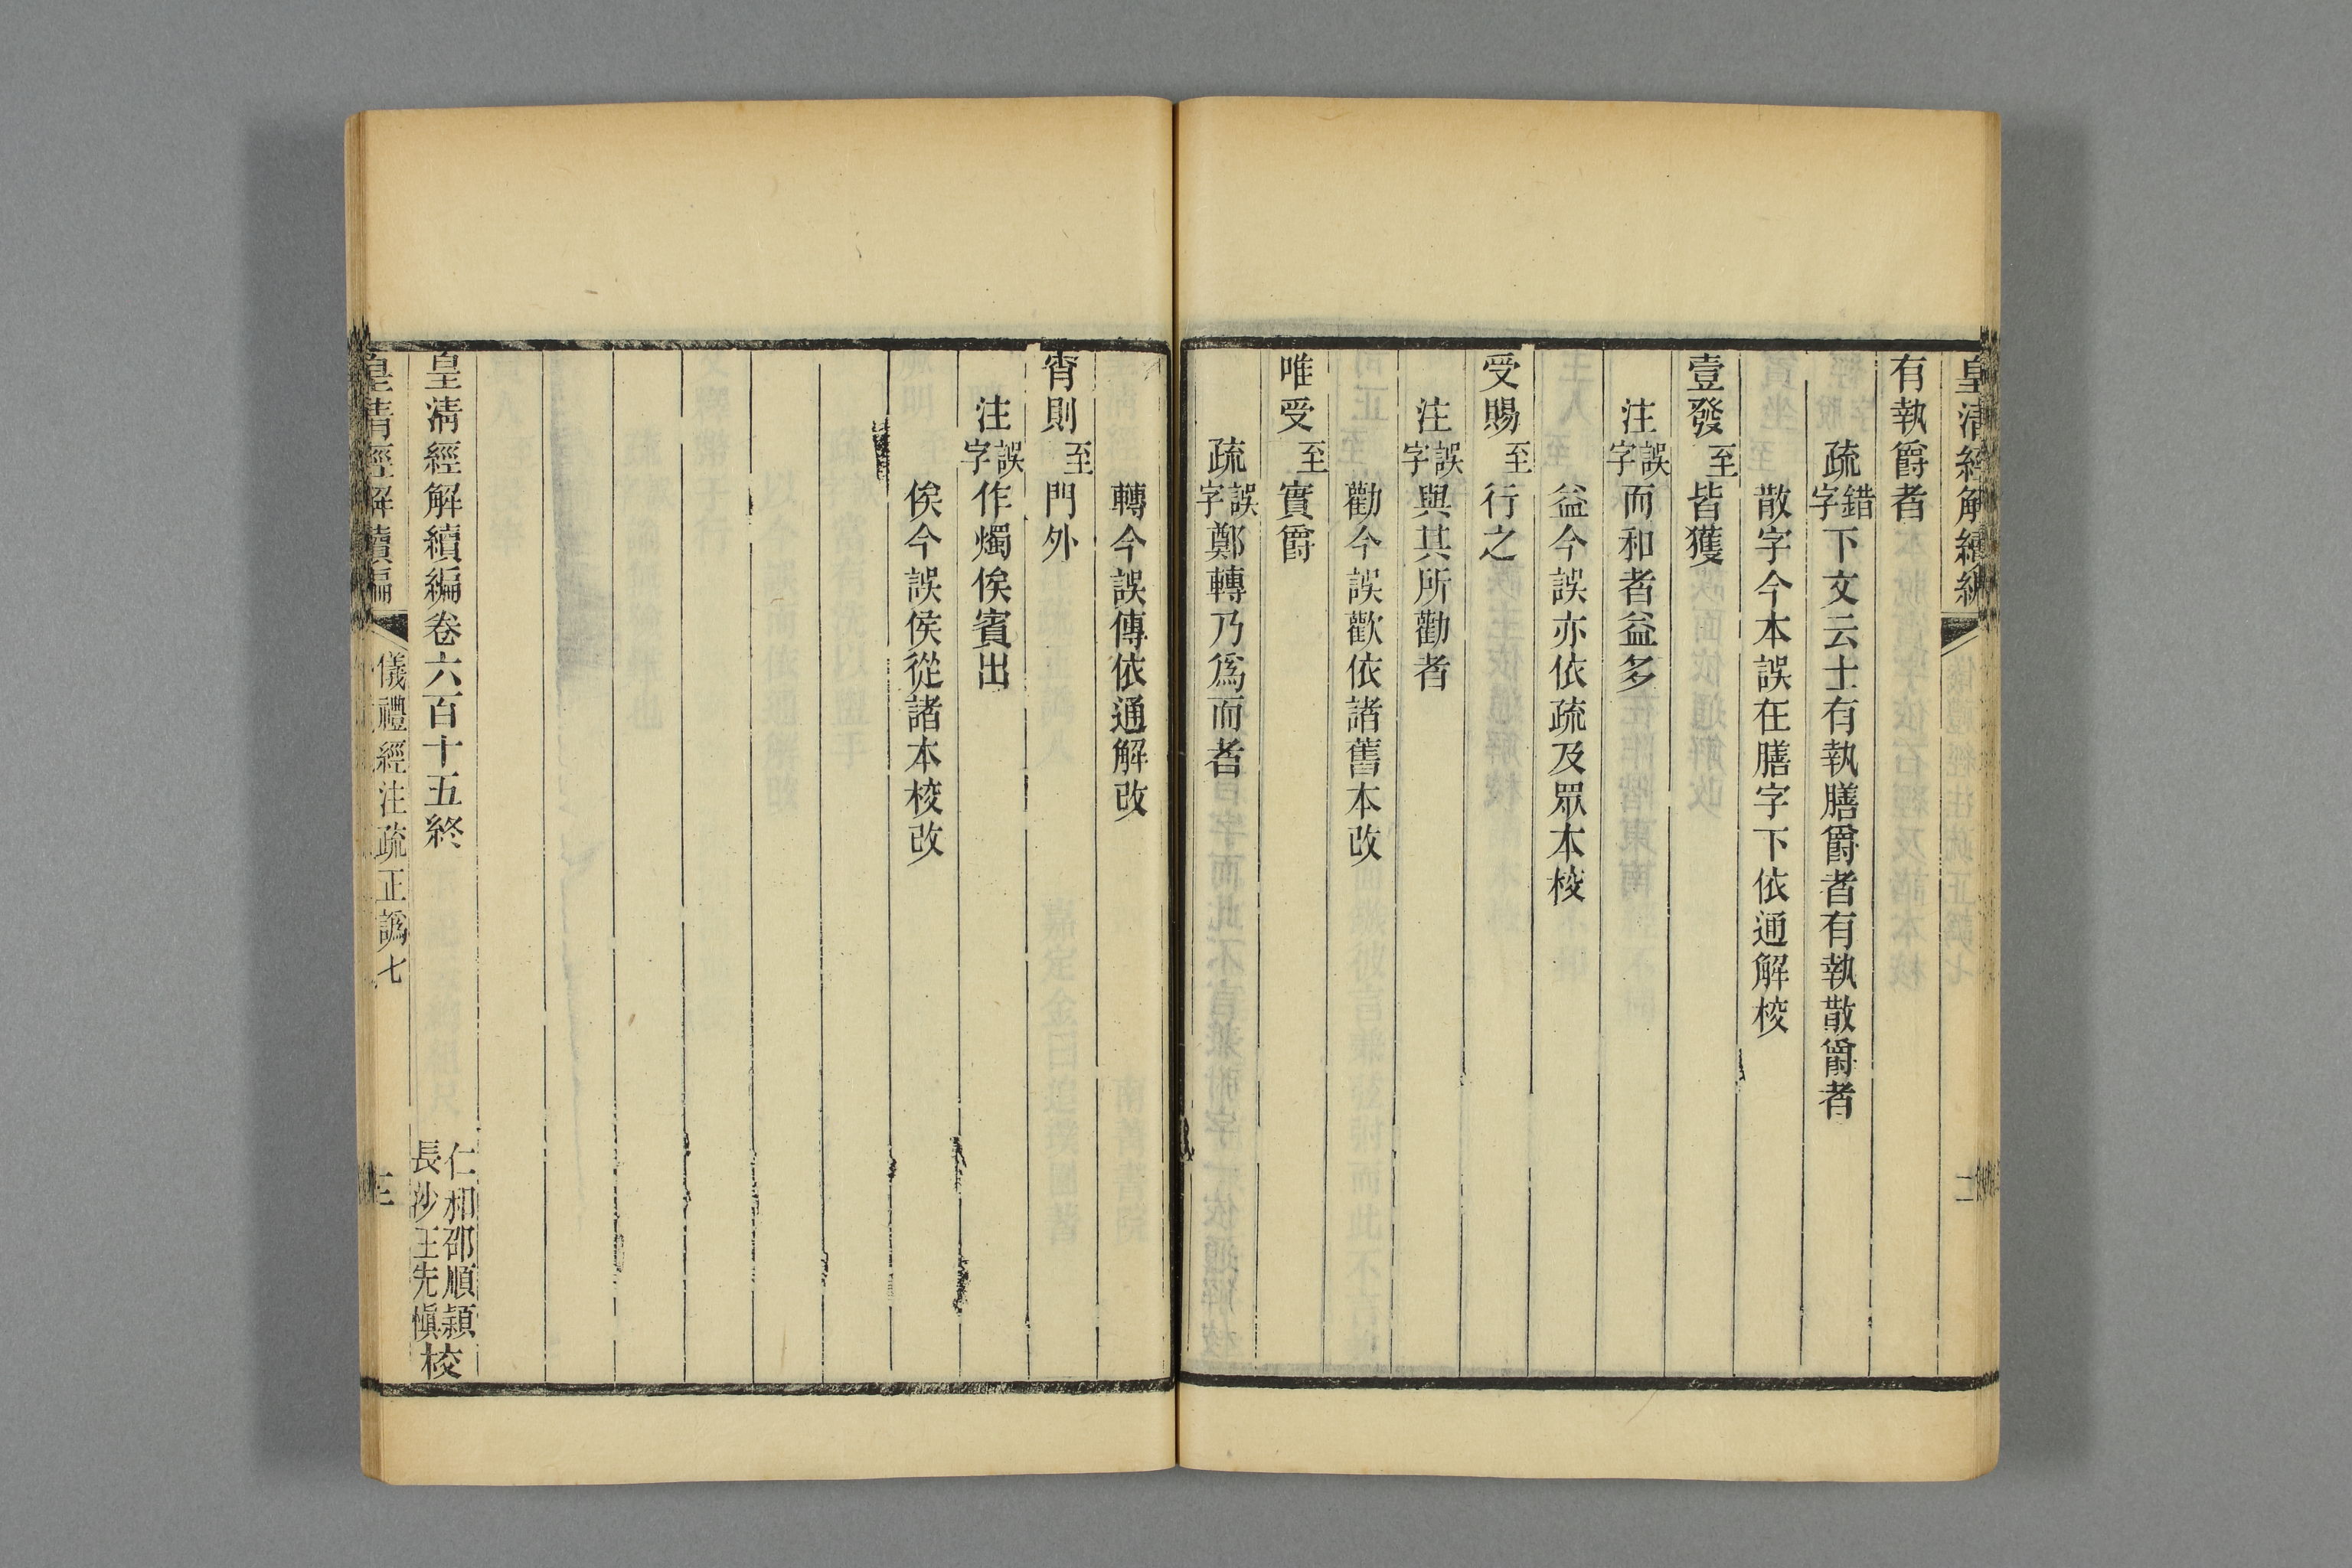 皇清經解續編
有執爵者
疏錯字下文云士有執膳爵者有執散爵者
散字今本誤在膳字下依通解校
壹發至皆獲
注誤字而和者益多
益今誤亦依疏及眾本校
受賜至行之
注誤字與其所勸者
勸今誤歡依諸舊本改
唯受至實爵
疏誤字鄭轉乃爲而者
轉今誤傳依通解改
宵則至門外
注誤字作燭俟賓出
俟今誤侯從諸本校改
皇清經解續編卷六百十五終
仁和邵順頴
長沙王先愼校
皇清經解續編
儀禮經注疏正譌七